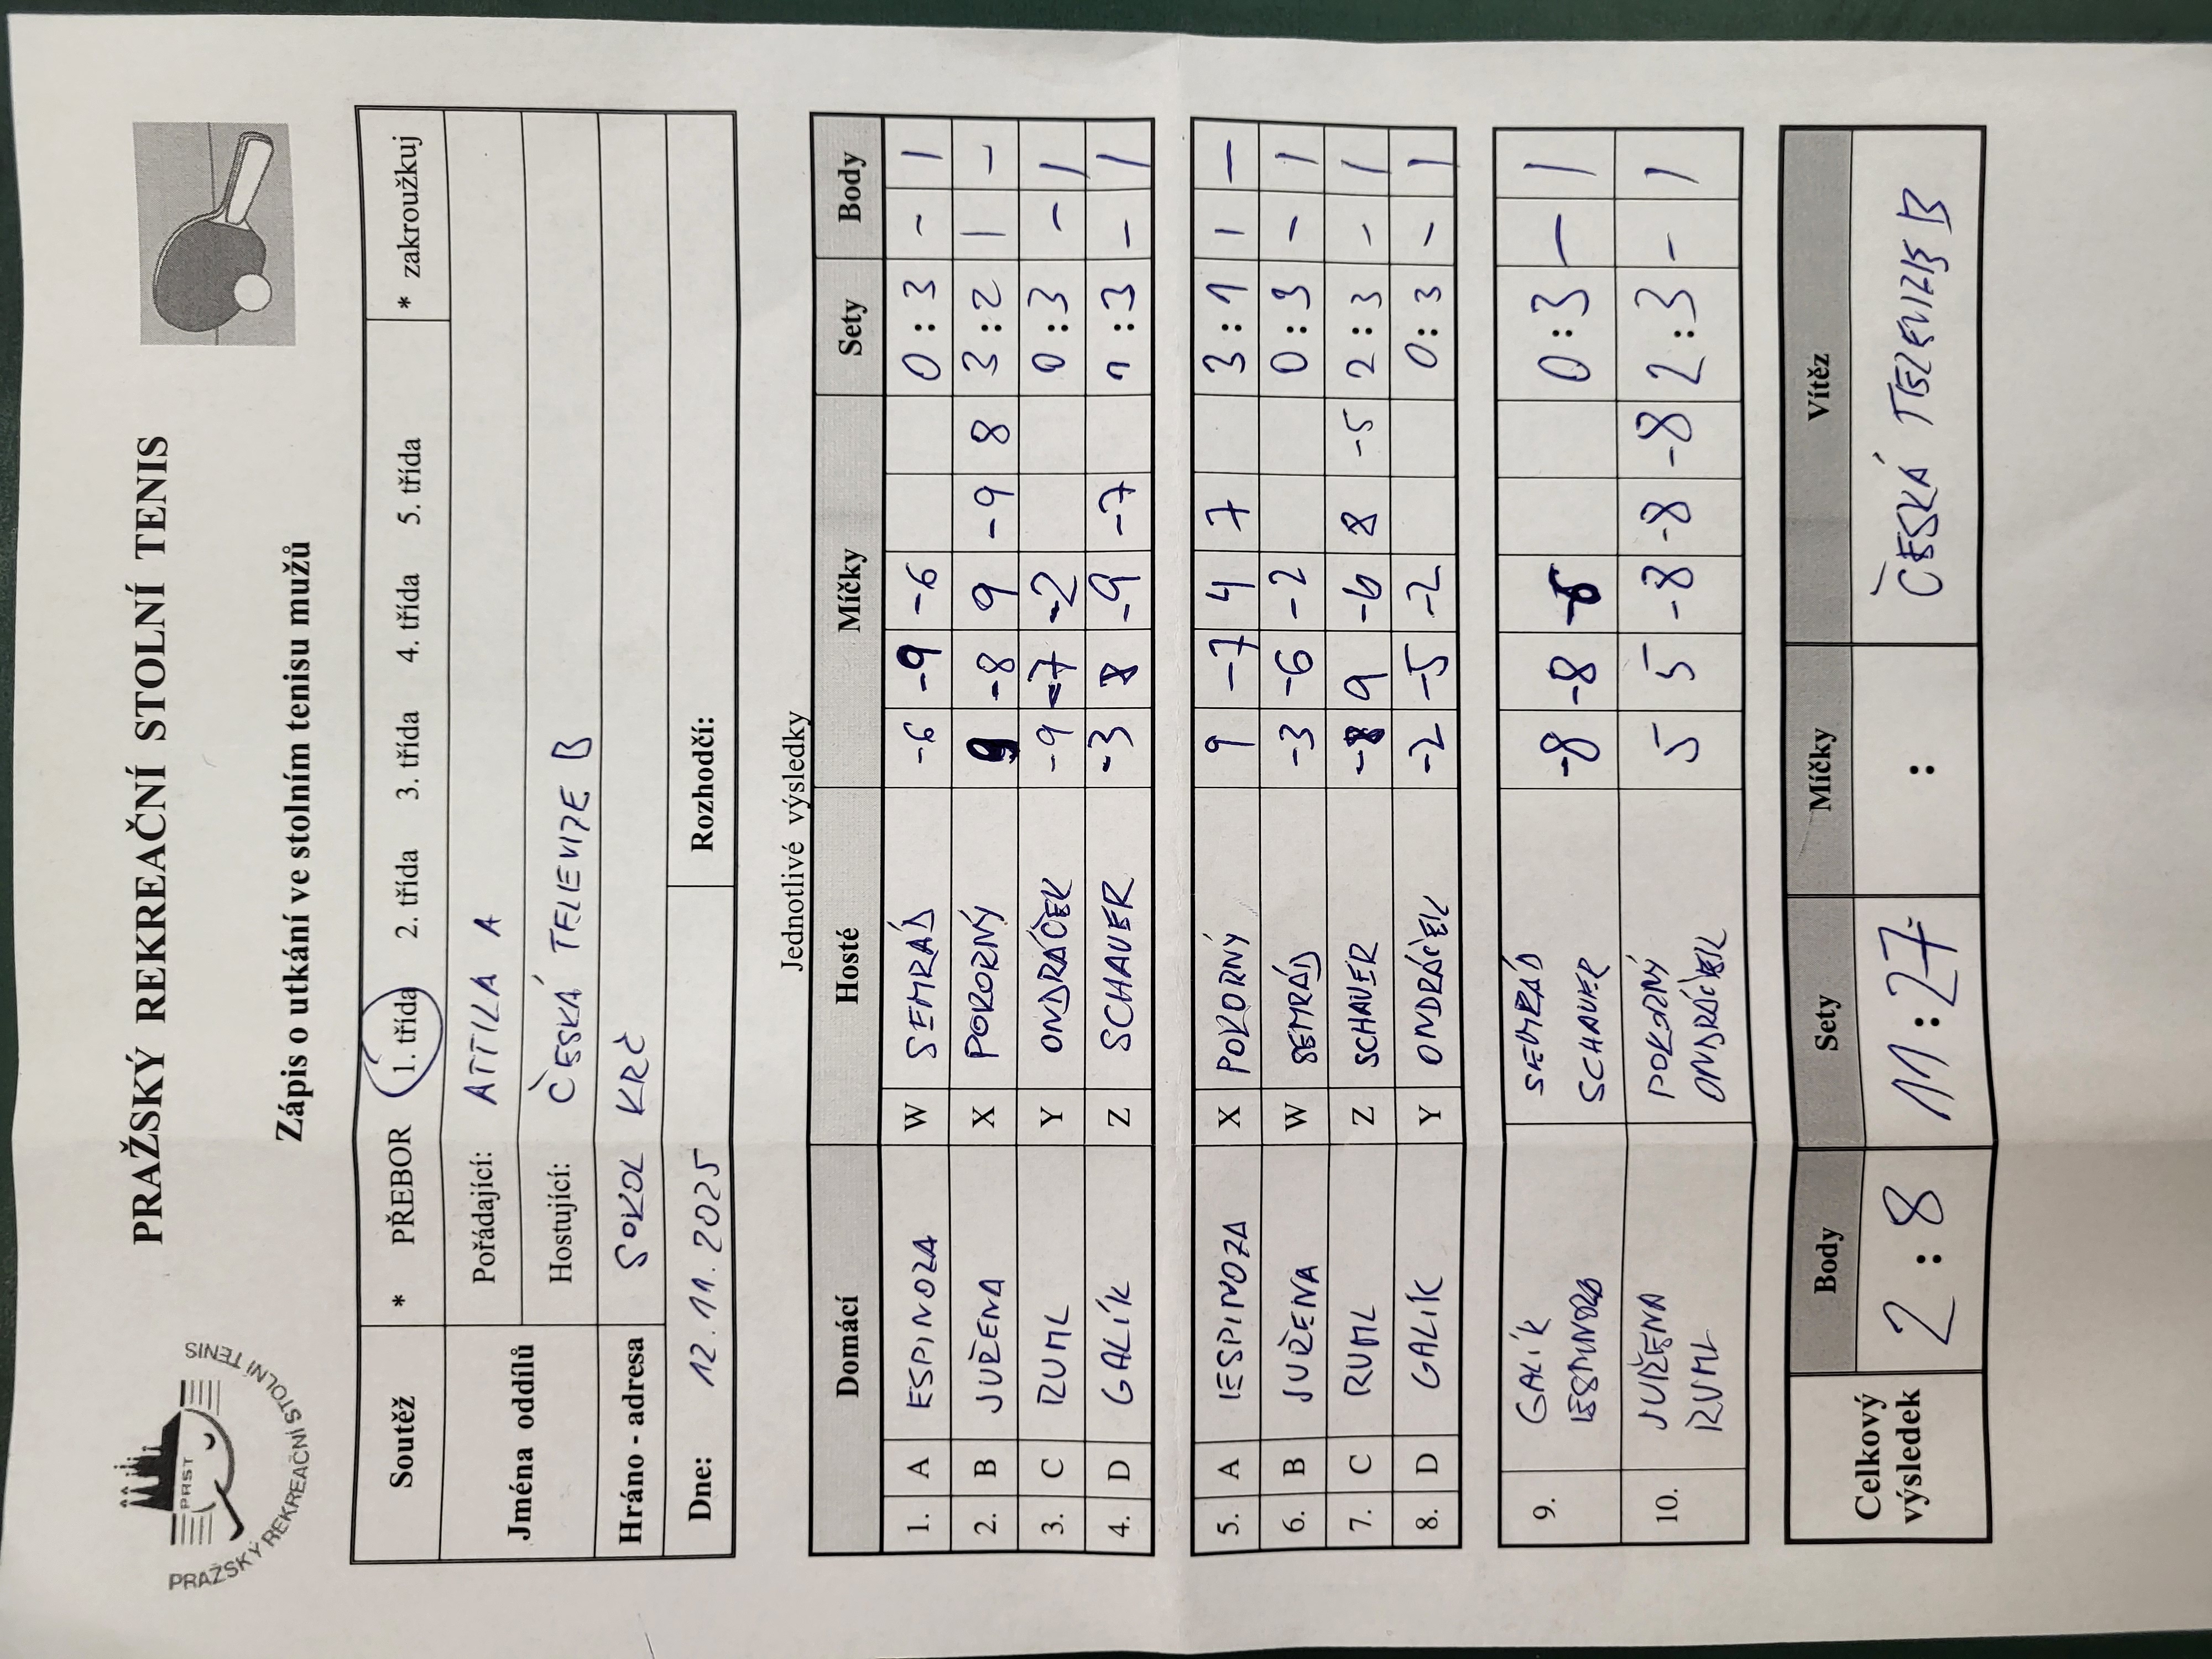 PRAŽSKÝ REKREAČNÍ STOLNÍ TENIS
PRST
PRAŽSKÝ REKREAČNÍ STOLNÍ TENIS
Zápis o utkání ve stolním tenisu mužů
Soutěž * PŘEBOR 1. třída 2. třída 3. třída 4. třída 5. třída * zakroužkuj
Jména oddílů Pořádající: ATTILA A
Hostující: ČESKÁ TELEVIZE B
Hráno - adresa SOKOL KRČ
Dne: 12.11.2025 Rozhodčí:
Jednotlivé výsledky
Domácí Hosté Míčky Sety Body
1. A ESPINOZA W SEMRÁD -6 -9 -6 0:3 - 1
2. B JUŘENA X POKORNÝ 9 -8 9 -9 8 3:2 1 -
3. C RUML Y ONDRÁČEK -9 -7 -2 0:3 - 1
4. D GALÍK Z SCHAUER -3 8 -9 -7 1:3 - 1
5. A ESPINOZA X POKORNÝ 9 -7 4 7 3:1 1 -
6. B JUŘENA W SEMRÁD -3 -6 -2 0:3 - 1
7. C RUML Z SCHAUER -8 9 -6 8 -5 2:3 - 1
8. D GALÍK Y ONDRÁČEK -2 -5 -2 0:3 - 1
9. GALÍK SEMRÁD -8 -8 0:3 - 1
ESPINOZA SCHAUER
10. JUŘENA POKORNÝ 5 5 -8 -8 -8 2:3 - 1
RUML ONDRÁČEK
Celkový výsledek Body Sety Míčky Vítěz
2:8 11:27 : ČESKÁ TELEVIZE B